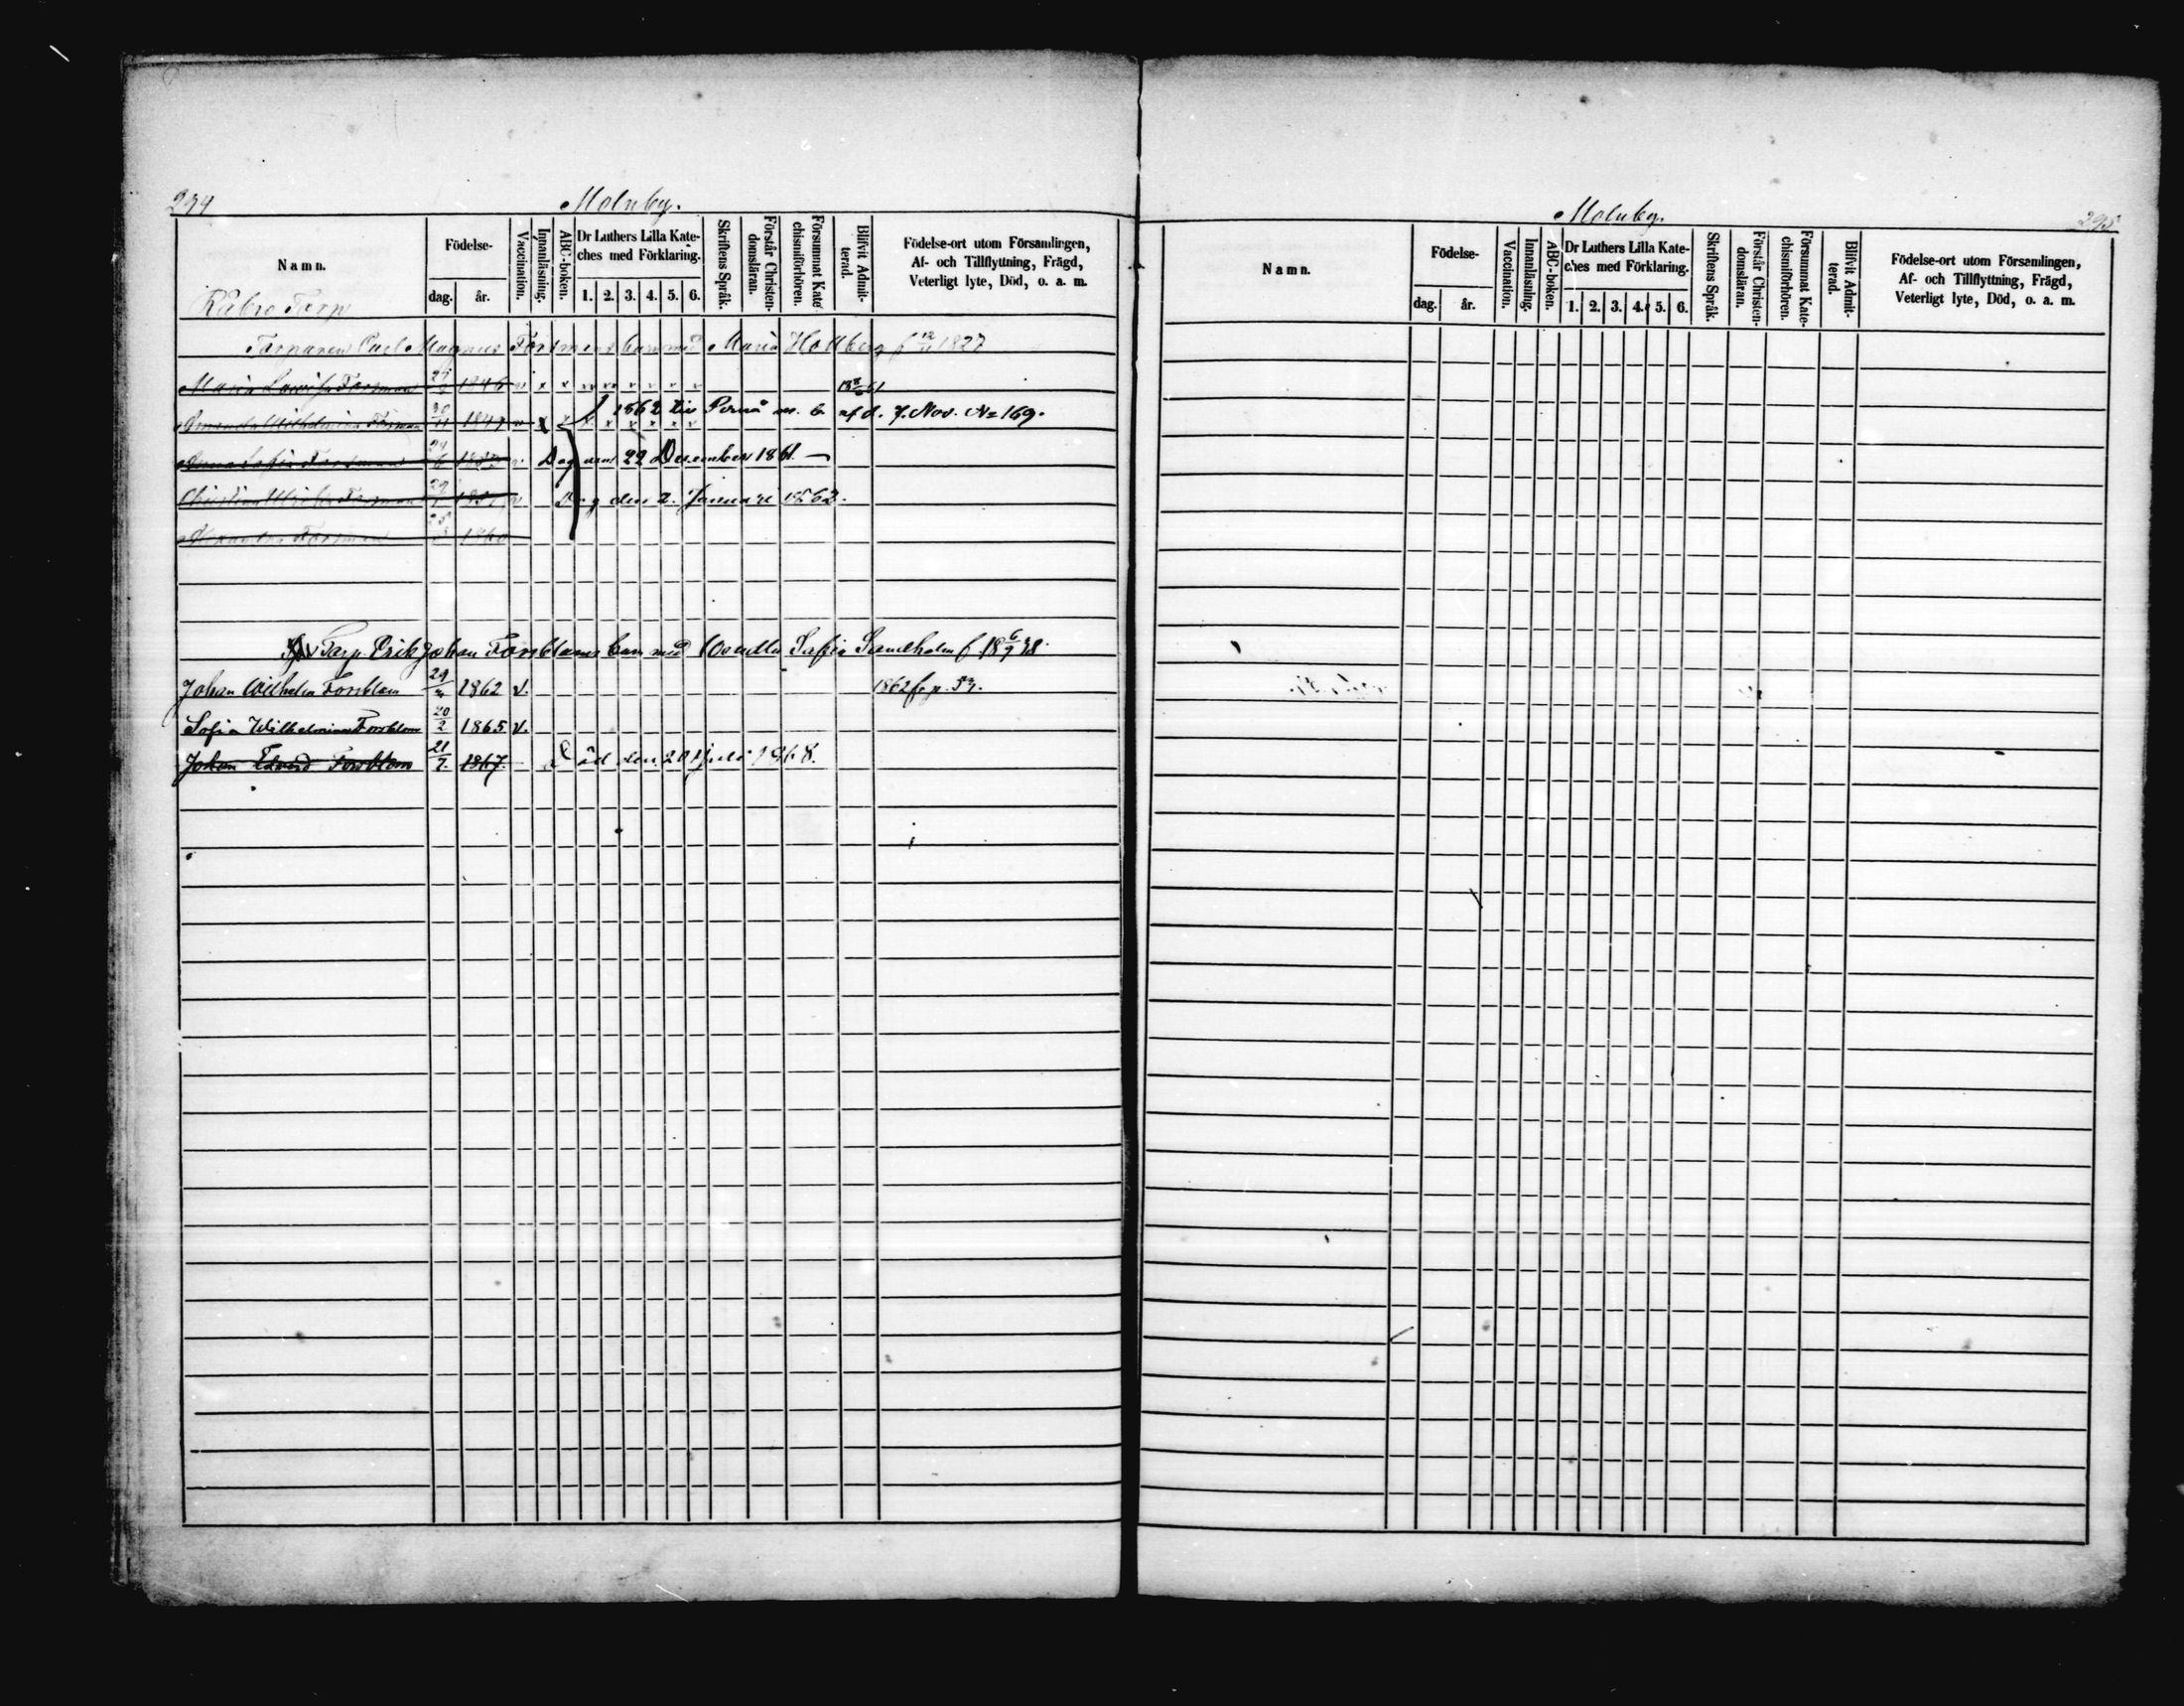 294
Molnby.
Namn.
Födelse-
dag.
år.
Vaccination.
Innanläsning.
ABC-boken.
Dr Luthers Lilla Kate-
ches med Förklaring.
1. 2. 3. 4. 5. 6.
Skriftens Språk.
Förstår Christen-
domsläran.
Försummat Kate-
chismiförhören.
Blifvit Admit-
terad.
Födelse-ort utom Församlingen,
Af- och Tillflyttning, Frägd,
Veterligt lyte, Död, o. a. m.
Råbro Torp
Torparen Carl Magnus Forsmans barn med Maria Hollberg f 1827
Maria Lovisa Forsman 1846
Amanda Wilhelmina Forsman 1849 1862 till Pernå m. b. af d. 7. Nov. No 169.
Anna Sofia Forsman Dog den 22 December 1861.
Christina Ulrika Forsman Dog den 2. Januari 1862.
Alexander Forsman 1860
Torp. Erik Johan Forsbloms barn med Wendla Sofia Sundholm f 18 6/9 38.
Johan Wilhelm Forsblom 1862 v. 1862 fr. p. 53.
Sofia Wilhelmina Forsblom 20/2 1865 v.
Johan Edvard Forsblom 21/7 1867. Död den 20 Juli 1868.
Molnby.
295
Namn.
Födelse-
dag.
år.
Vaccination.
Innanläsning.
ABC-boken.
Dr Luthers Lilla Kate-
ches med Förklaring.
1. 2. 3. 4. 5. 6.
Skriftens Språk.
Förstår Christen-
domsläran.
Försummat Kate-
chismiförhören.
Blifvit Admit-
terad.
Födelse-ort utom Församlingen,
Af- och Tillflyttning, Frägd,
Veterligt lyte, Död, o. a. m.